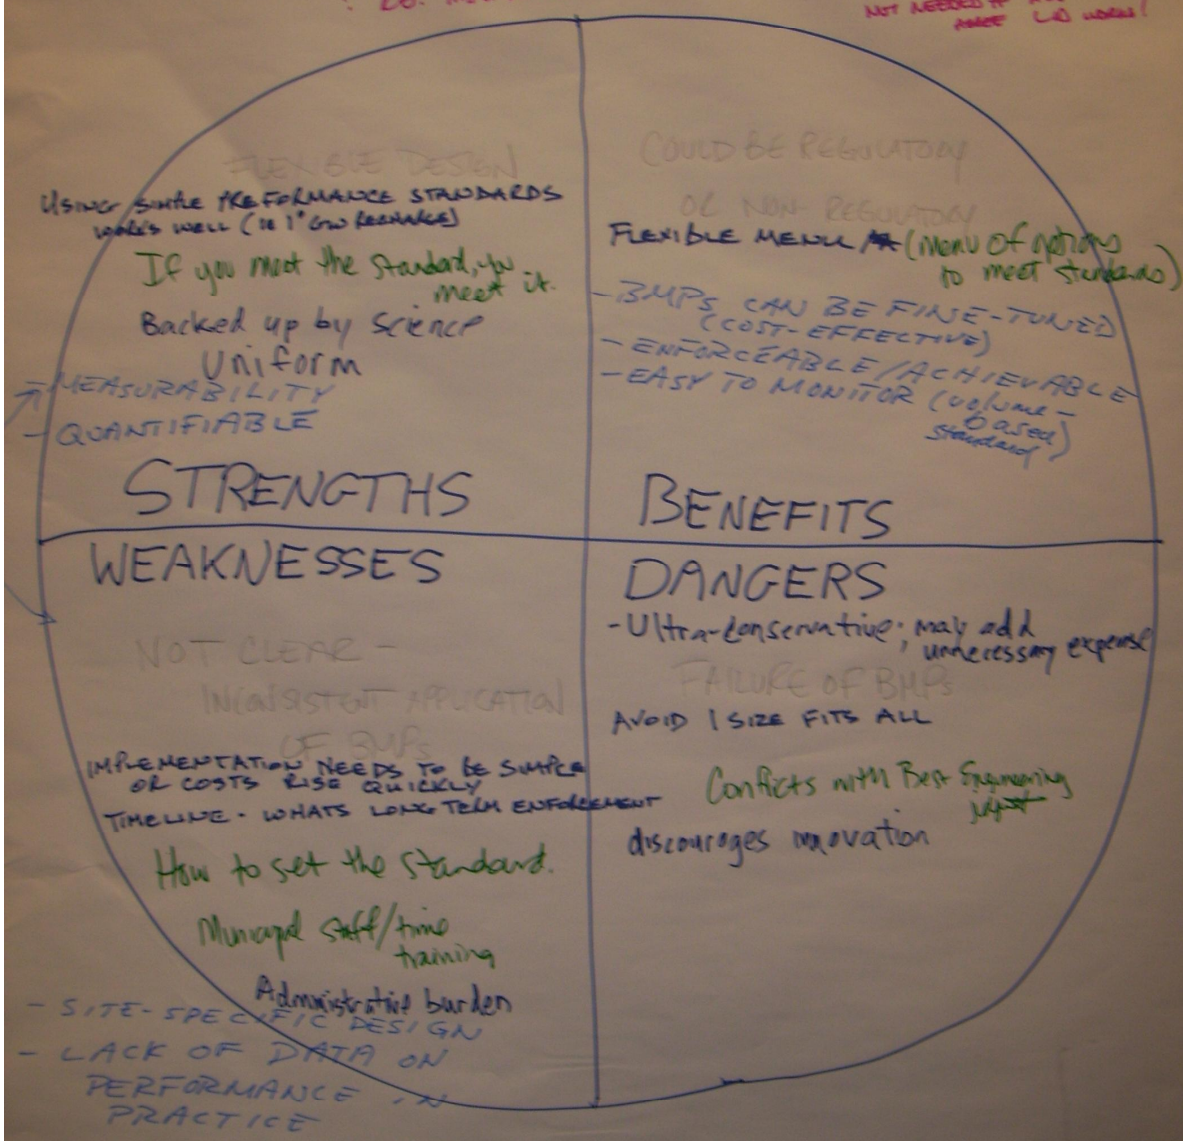 NOT NEEDED
FLEXIBLE DESIGN
USING SIMPLE PREFORMANCE STANDARDS
WORKS WELL (IE 1" GW RECHARGE)
If you meet the standard, you
meet it.
Backed up by science
Uniform
- MEASURABILITY
- QUANTIFIABLE
STRENGTHS
COULD BE REGULATORY
OR NON-REGULATORY
FLEXIBLE MENU (menu of options
to meet standards)
- BMPs CAN BE FINE-TUNED
(COST-EFFECTIVE)
- ENFORCEABLE/ACHIEVABLE
- EASY TO MONITOR (volume-
based)
standard
BENEFITS
WEAKNESSES
NOT CLEAR -
INCONSISTENT APPLICATION
OF BMPs
IMPLEMENTATION NEEDS TO BE SIMPLE
OR COSTS RISE QUICKLY
TIMELINE - WHATS LONG TERM ENFORCEMENT
How to set the standard.
Municipal staff/time
training
Administrative burden
- SITE-SPECIFIC DESIGN
- LACK OF DATA ON
PERFORMANCE IN
PRACTICE
DANGERS
- Ultra-conservative; may add
unnecessary expense
FAILURE OF BMPs
AVOID 1 SIZE FITS ALL
Conflicts with Best Engineering
discourages innovation